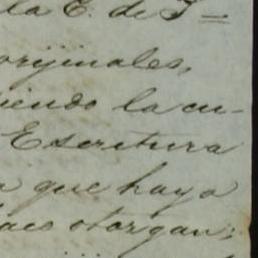 la E. de T=
orijinales,
iendo la cu-
Escritura
que haya
otorgan;